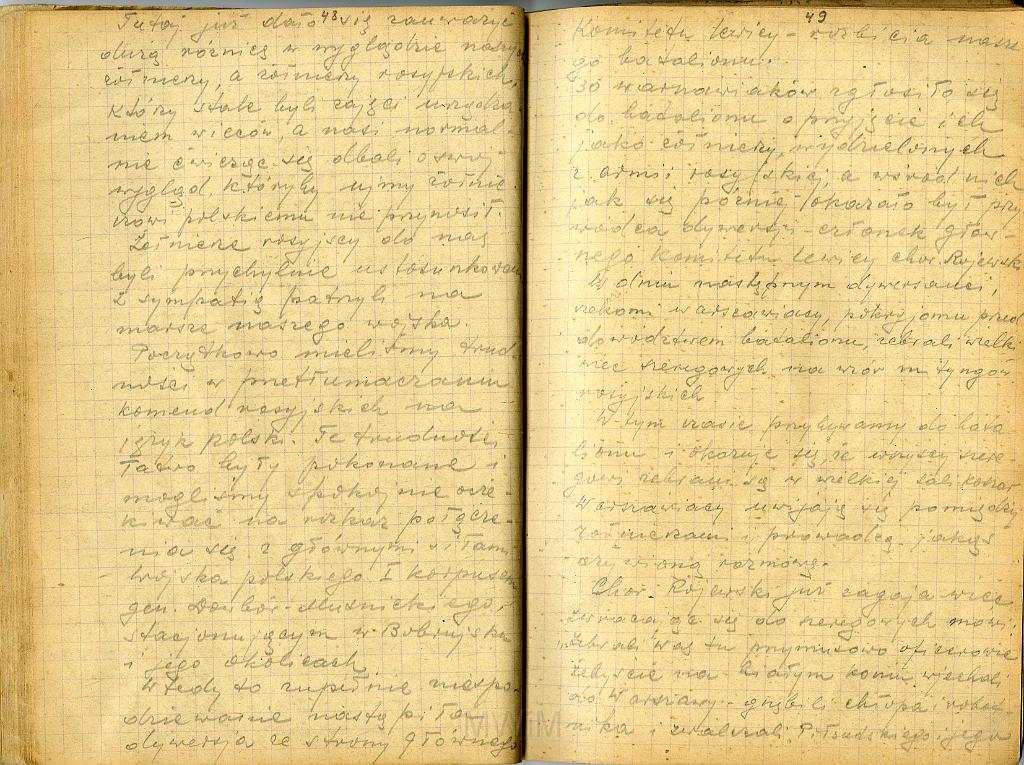 48
Tutaj już dało się zauważyć
dużą różnicę w wyglądzie naszych
żółnieży, a żółnieży rosyjskich,
który stale byli zajęci urządza
niem wieców, a nasi normal-
nie ćwicząc się dbali o swój
wygląd, któryby ujmy żołnie
rzowi polskiemu nie przynosił.
Żółnieże rosyjscy do nas
byli przychylnie ustosunkowani
z sympatią patrzyli na
marsze naszego wojska.
Początkowo mieliśmy trud-
ności w przetłumaczaniu
komend rosyjskich na
język polski. Te trudności
łatwo były pokonane i
mogliśmy spokojnie ocze-
kiwać na rozkaz połącze-
nia się z głównymi siłami
Wojska polskiego I korpusem
gen. Dowbór-Muśnickiego,
stacjonującym w Bobrujsku
i jego okolicach
Wtedy to zupełnie niespo-
dziewanie nastąpiła
dywersja ze strony głównego
49
Komitetu lewicy - rozbicia nasze
go batalionu.
30 warszawiaków zgłosiło się
do batalionu o przyjęcie ich
jako żółnieży, wydzielonych
z armii rosyjskiej, a wśród nich
jak się później okazało był przy
wódca dywersji - członek głów-
nego Komitetu lewicy chor. Rojewski
W dniu następnym dywersanci,
rzekomi warszawiacy, pokryjomu przed
dowództwem batalionu, zebrali wielk
wiec szeregowych na wzór mityngów
rosyjskich
W tym czasie przybywamy do bata
lionu i okazuje się, że wszyscy szere-
gowi zebrani są w wielkiej sali koszar
Warszawiacy uwijają się pomiędzy
żółnieżami i prowadzą jakąś
ożywioną rozmowę.
Chor. Rojewski już zagaja wiec
zwracając się do szeregowych mówi
"Zebrali was tu przymusowo oficerowie
żebyście na białym koniu wjechali
do Warszawy - gnębili chłopa i robot-
nika i zwalczali Piłsudskiego i jego